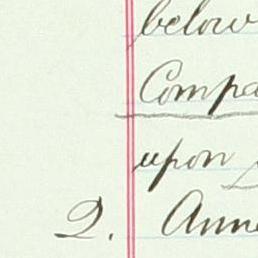 below
Compa
upon
2. Anne